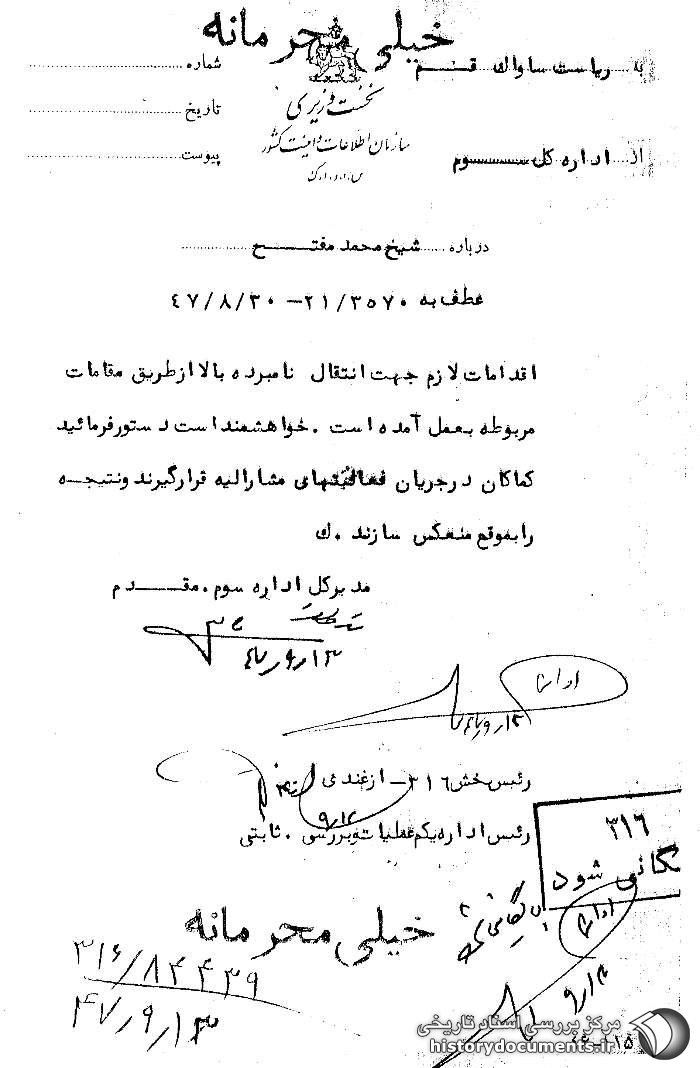 خیلی محرمانه
به ریاست ساواک قم
شماره
نخست وزیری
تاریخ
سازمان اطلاعات و امنیت کشور
از اداره کل سوم
پیوست
س.ا.و.ا.ک
درباره شیخ محمد مفتح
عطف به ۲۱/۳۵۷۰ - ۴۷/۸/۳۰
اقدامات لازم جهت انتقال نامبرده بالا از طریق مقامات
مربوطه بعمل آمده است. خواهشمند است دستور فرمائید
کماکان در جریان فعالیتهای مشارالیه قرار گیرند و نتیجه
را بموقع منعکس سازند. ک
مدیر کل اداره سوم. مقدم
۴۷/۹/۱۳
رئیس بخش ۳۱۶ - ازغندی
رئیس اداره یکم عملیات و بررسی. ثابتی
۹/۱۲
۳۱۶
گانی شود
بایگانی
خیلی محرمانه
۳۱۶/۸۴۴۳۹
۴۷/۹/۱۳
۹/۱۳
مرکز بررسی اسناد تاریخی
historydocuments.ir